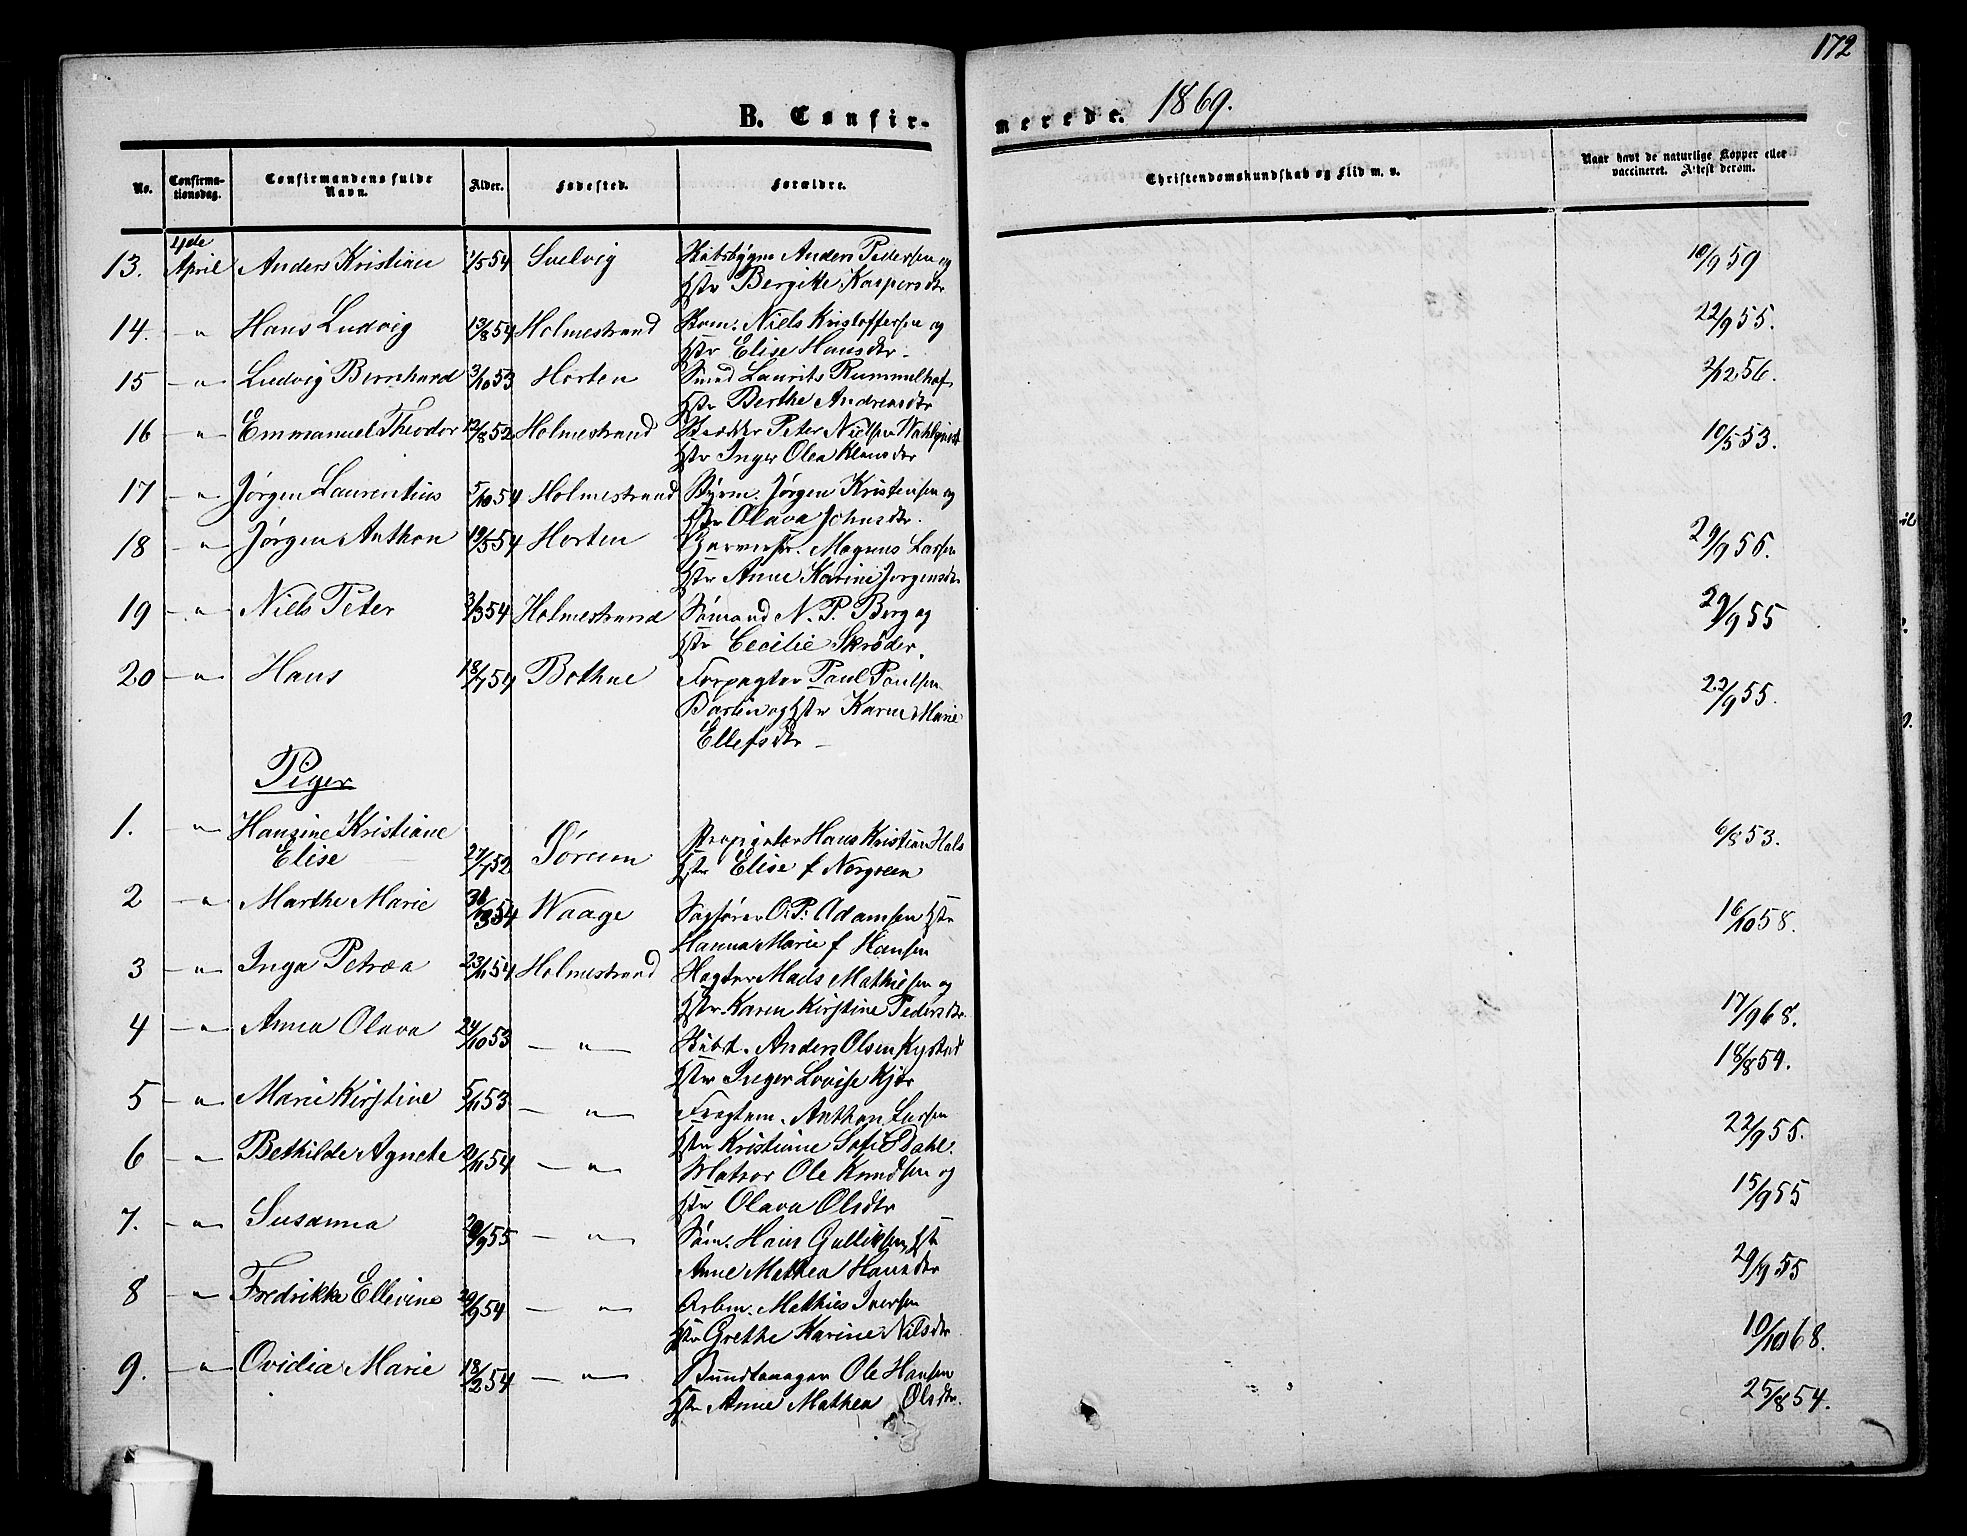 172
B. Confirmerede. 1869.
No. Confirmationsdag. Confirmandens fulde Navn. Alder. Fødested. Forældre. Christendomskundskab og Flid m. v. Naar havt de naturlige Kopper eller vaccineret. Attest derom.
4de
13. April Anders Kristian 1/5 54 Svelvig Anders Pedersen og 10/9 59
Hstr Bergitte Kaspersdtr
14. " Hans Ludvig 13/8 54 Holmestrand Niels Kristoffersen og 22/9 55.
Hstr Elise Hansdtr
15 " Ludvig Bernhard 3/10 53 Horten Smed Laurits Rummelhof 2/12 56.
Hstr Berthe Andreasdtr
16 " Emmanuel Theodor 12/8 52 Holmestrand Peter Nielsen Wahlqvist 10/5 53.
Hstr Inger Olea Klausdtr
17 " Jørgen Laurentius 5/10 54 Holmestrand Styrm. Jørgen Kristensen og
Hstr Olava Johnsdtr.
18 " Jørgen Anthon 19/5 54 Horten Magnus Larsen 29/9 55.
Hstr Anne Karine Jørgensdtr
19 " Niels Peter 3/3 54 Holmestrand Sømand N. P. Berg og 29/9 55
Hstr Cecilie Skrøder.
20 " Hans 18/7 54 Bothne Forpagter Paul Paulsen 22/9 55.
og Hstr Karen Marie
Ellefsdtr
Piger
1. " Hansine Kristiane Hans Kristian Hals 6/8 53.
Elise 27/7 52 Sørum Hstr Elise f Norgreen
2 " Marthe Marie 54 Waage Sagfører O. P. Adamsen Hstr 16/10 58.
Hanna Marie f Hansen
3 " Inga Petrea 23/11 54 Holmestrand Mads Mathiesen og
Hstr Karen Kirstine Pedersdtr 17/9 68.
4 " Anna Olava 24/10 53 " Anders Olsen Kystad 18/8 54.
Hstr Inger Lovise Kjær
5 " Marie Kirstine 5/11 53 " Fragtem. Anthon Larsen 22/9 55.
Hstr Kristiane Sofie Dahl.
6 " Bethilde Agnete 2/11 54 " Matros Ole Knudsen og 15/9 55
Hstr Olava Olsdtr
7. " Susanna 20/9 55 " Søm. Hans Gulliksen, Hst
Anne Mathea Hansdtr 29/9 55
8 " Fredrikke Ellevine 20/9 54 " Arbm. Mathies Iversen
Hstr Grethe Karine Nilsdtr 10/10 68.
9. " Ovidia Marie 18/2 54 " Bundtmager Ole Hansen 25/8 54.
Hstr Anne Mathea Olsdtr.